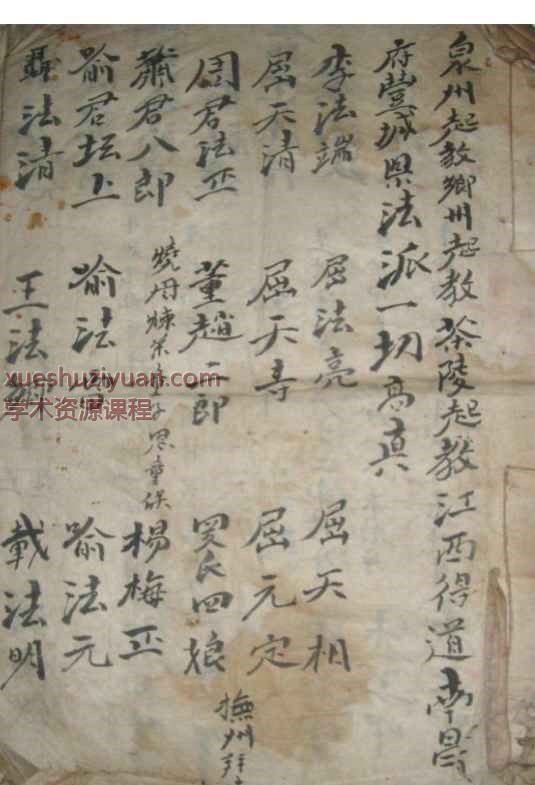 泉州起教鄉州起教茶陵起教江西得道南昌
府豊城县法派一切高真
李法端 屈法亮 屈天相
屈天清 屈天寿 屈元定
周君法正 董趙二郎 四娘
撫州
蕭君八郎 楊梅正
燒丹煉
喻君坛上 喻法 喻法元
聶法清 王法 載法明
xueshuziyuan.com
学术资源课程